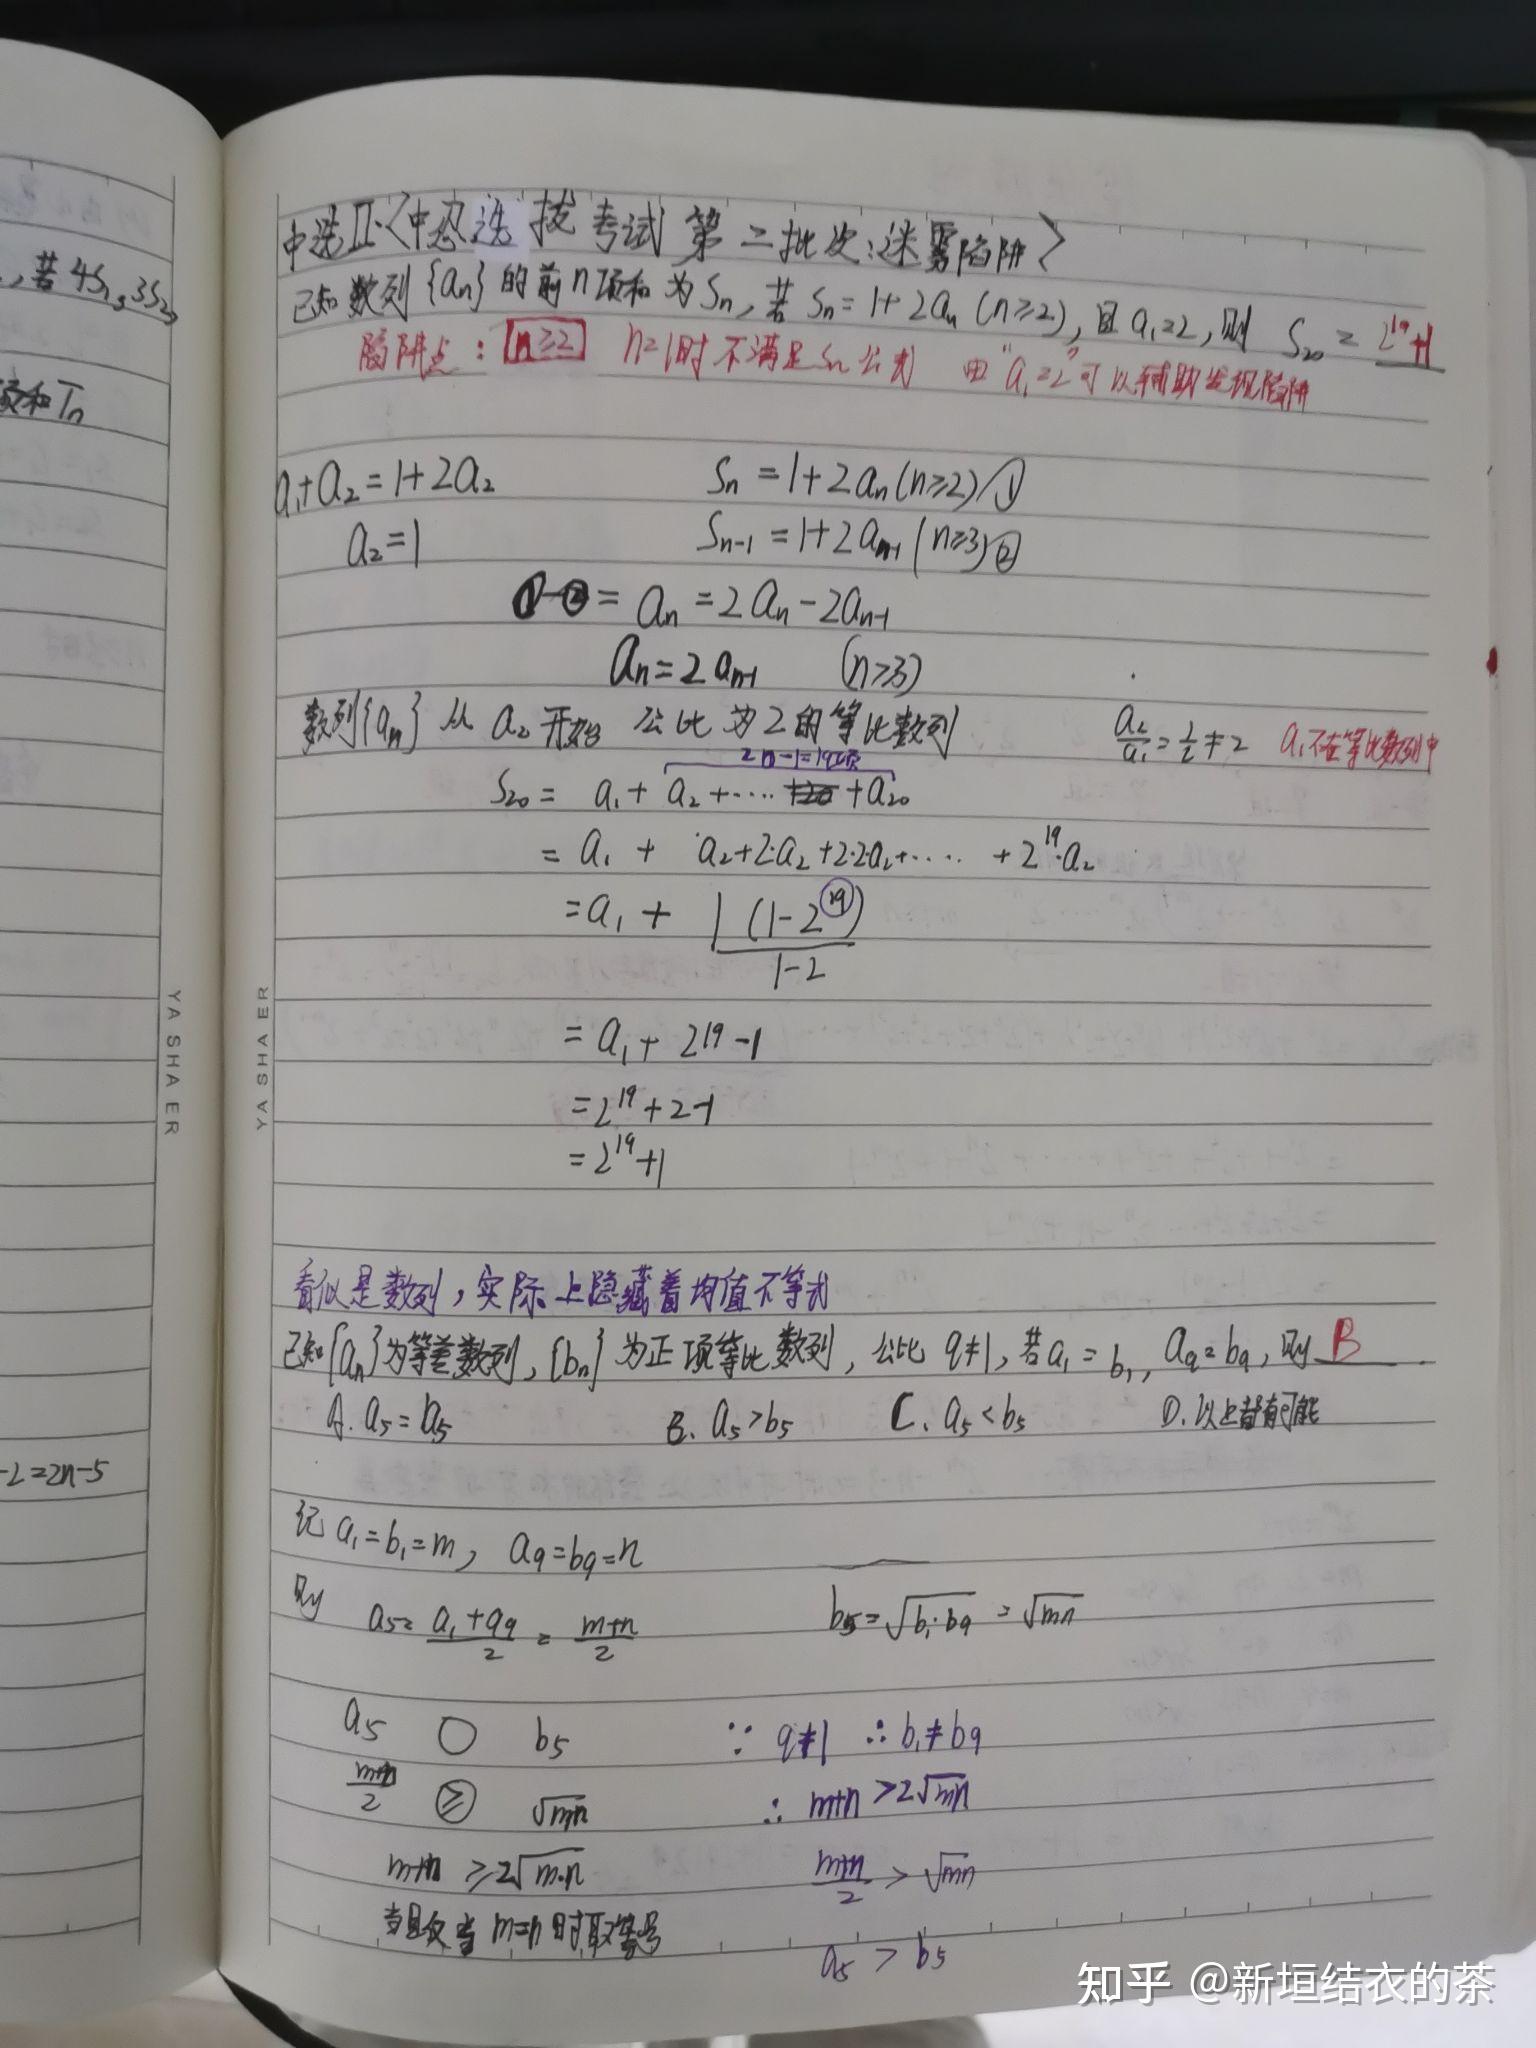 ，若4S₁，3S₂，
项和Tₙ
-2=2n-5
YASHAER
YASHAER
中选Ⅱ·〈中忍选拔考试第二批次：迷雾陷阱〉
已知数列{aₙ}的前n项和为Sₙ，若Sₙ=1+2aₙ(n≥2)，且a₁=2，则 S₂₀=2¹⁹+1
陷阱点：n≥2 n=1时不满足Sₙ公式 由"a₁=2"可以辅助发现陷阱
a₁+a₂=1+2a₂ Sₙ=1+2aₙ(n≥2)①
a₂=1 Sₙ₋₁=1+2aₙ₋₁(n≥3)②
①-②= aₙ=2aₙ-2aₙ₋₁
aₙ=2aₙ₋₁ (n≥3)
数列{aₙ}从a₂开始 公比为2的等比数列 a₂/a₁=1/2≠2 a₁不在等比数列中
20-1=19项
S₂₀= a₁+a₂+····+a₂₀
= a₁+ a₂+2·a₂+2·2a₂+···· +2¹⁹·a₂
=a₁+ 1(1-2¹⁹)/(1-2)
= a₁+2¹⁹-1
=2¹⁹+2-1
=2¹⁹+1
看似是数列，实际上隐藏着均值不等式
已知{aₙ}为等差数列，{bₙ}为正项等比数列，公比q≠1，若a₁=b₁，a₉=b₉，则 B
A. a₅=b₅ B. a₅>b₅ C. a₅<b₅ D.以上都有可能
记a₁=b₁=m，a₉=b₉=n
则 a₅=(a₁+a₉)/2=(m+n)/2 b₅=√(b₁·b₉)=√(mn)
a₅ ○ b₅ ∵ q≠1 ∴b₁≠b₉
(m+n)/2 ≥ √(mn) ∴ m+n>2√(mn)
m+n ≥2√(m·n) (m+n)/2 > √(mn)
当且仅当m=n时取等号
a₅ > b₅
知乎 @新垣结衣的茶